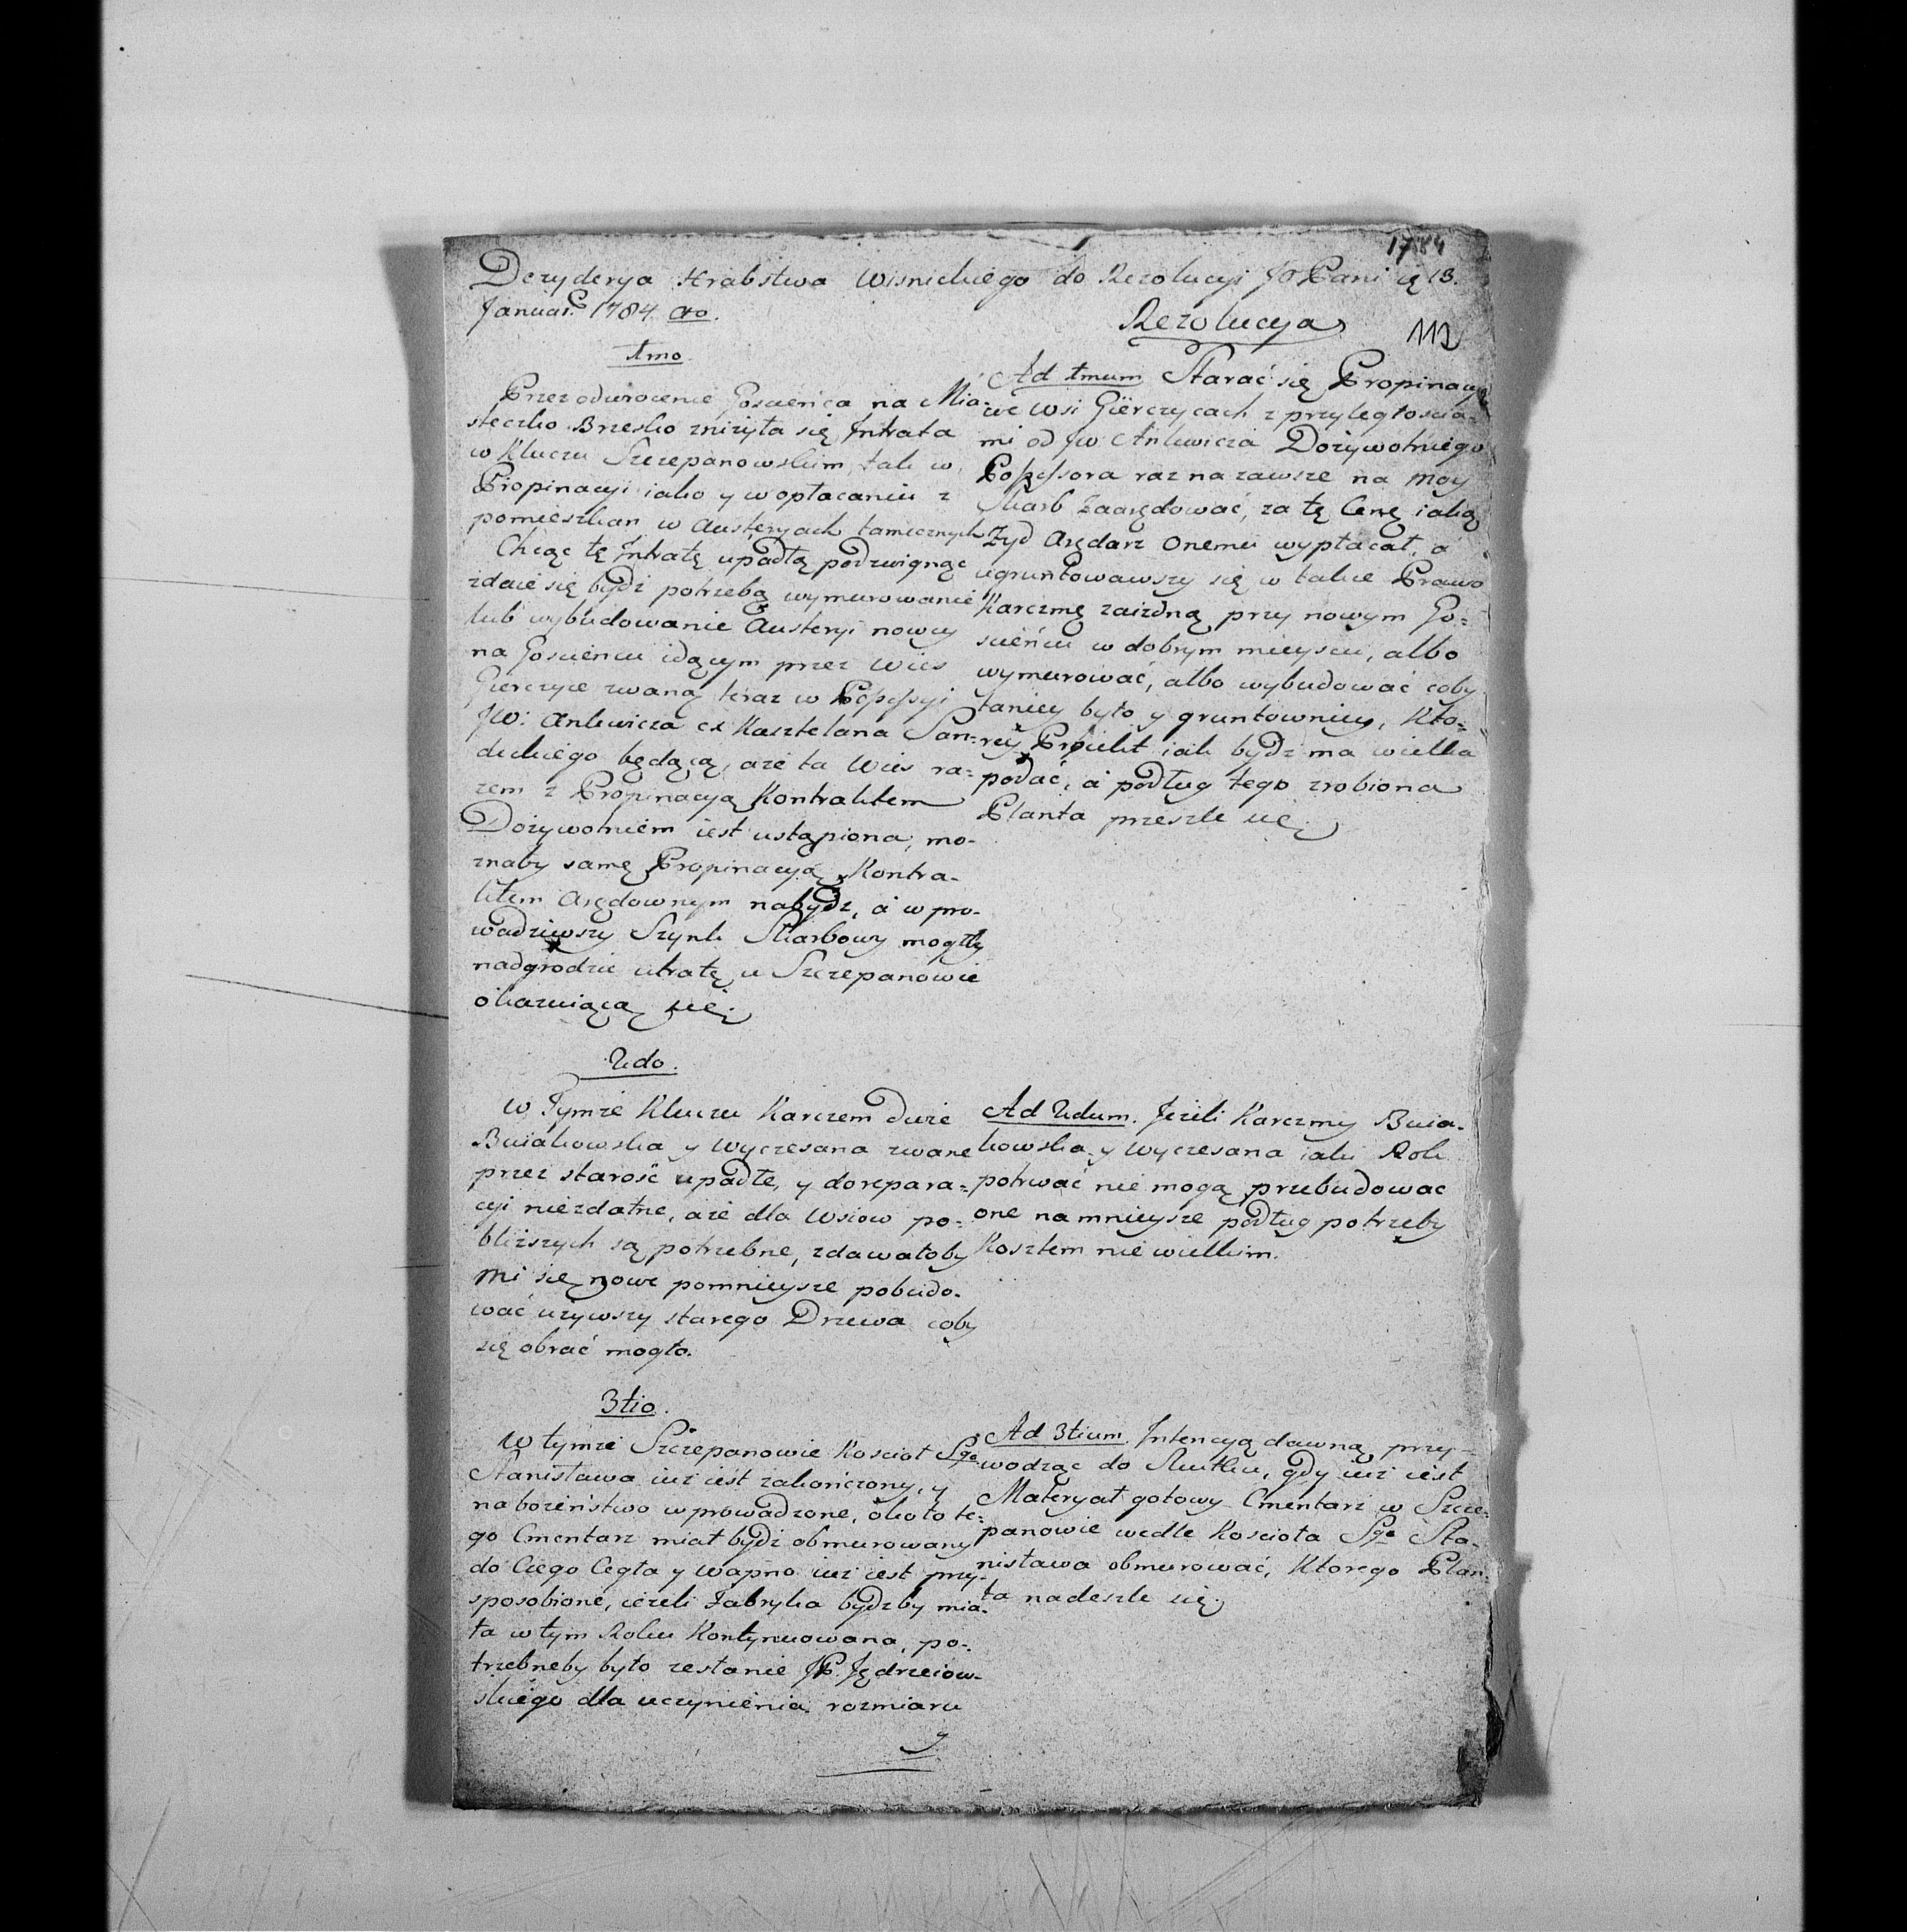 1784
Dezyderya Hrabstwa Wisnickiego do Rezolucyi JO Pani 13.
Januar. 1784 Ao.
Rezolucya
112
1mo
Przez odwrocenie Goscieńca na Mia-
steczko Brzesko zniżyła się Intrata
w Kluczu Szczepanowskim, tak w
Propinacyi iako y w opłacaniu z
pomieszkan w Austeryach tamecznych
Chcąc tę Intratę upadłą podzwignąc
zdaie się bydź potrzebą wymurowanie
lub wybudowanie Austeryi nowey
na Goscieńcu idącym przez Wies
Gierczyce zwaną teraz w Possessyi
JW: Ankwicza ex Kasztelana San-
deckiego będącą, aże ta Wies ra-
zem z Propinacyą Kontraktem
Dożywotniem iest ustąpiona, mo-
znaby samę Propinacyą Kontra-
ktem Arędownym nabydz, a wpro-
wadziwszy Szynk Skarbowy mogłby
nadgrodzic utratę w Szczepanowie
okazuiącą się.
Ad 1mum Starać się Propinacyę
we Wsi Gierczycach z przyległoscia-
mi od JW. Ankwicza Dożywotniego
Possessora raz na zawsze na moy
Skarb zaarędować, za tę Cenę iaką
Zyd Arędarz onemu wypłacał, a
ugruntowawszy się w takie Prawo
Karczmę zaizdną przy nowym Go-
scieńcu w dobrym mieyscu, albo
wymurować, albo wybudować coby
taniey było y gruntowniey, Kto-
rey Proiekt iak bydz ma wielka
podać, a podług tego zrobiona
Planta przeszle się.
2do.
W Tymże Kluczu Karczem dwie
Buiakowska y Wyczesana zwane
przez starość upadłe, y do repara-
cyi niezdatne, aże dla Wsiow po-
bliższych są potrzebne, zdawałoby
mi się nowe pomnieysze pobudo-
wać używszy starego Drzewa coby
się obrać mogło.
Ad 2dum. Jeżeli Karczmy Buia-
kowska y Wyczesana iak Rok
potrwać nie mogą przebudowac
one na mnieysze podług potrzeby
Kosztem nie wielkim.
3tio.
W tymże Szczepanowie Koscioł Sgo
Stanisława iuż iest zakończony, y
nabożeństwo wprowadzone, około te-
go Cmentarz miał bydź obmurowany
do Czego Cegła y wapno iuż iest przy-
sposobione, ieżeli Fabryka bydzby mia-
ła w tym Roku Kontynuowana, po-
trzebneby było zesłanie JP. Jędrzeiow-
skiego dla uczynienia rozmiaru
y
Ad 3tium. Intencyą dawną przy-
wodząc do Skutku, gdy iuż iest
Materyał gotowy Cmentarz w Szcze-
panowie wedle Koscioła Sgo Sta-
nisława obmurować, Ktorego Plan-
ta nadeszle się.